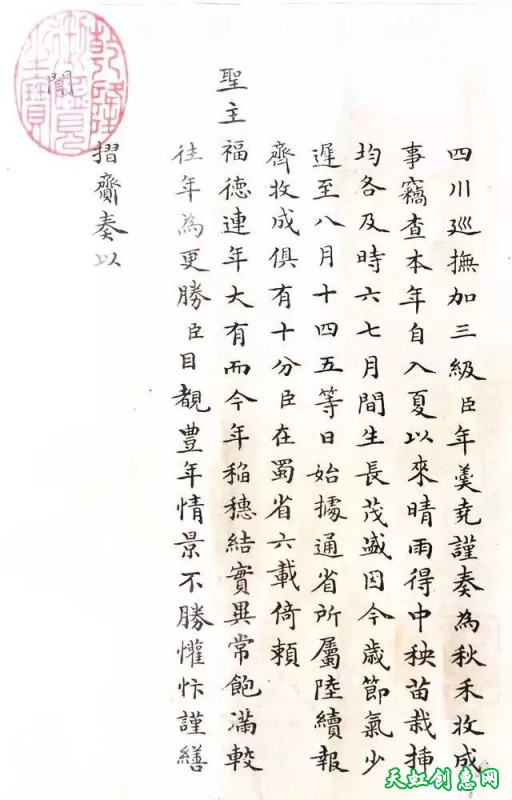 四川巡撫加三級臣年羹堯謹奏為秋禾收成
事竊查本年自入夏以來晴雨得中秧苗栽插
均各及時六七月間生長茂盛因今歲節氣少
遲至八月十四五等日始據通省所屬陸續報
齊收成俱有十分臣在蜀省六載倚賴
聖主福德連年大有而今年稻穗結實異常飽滿較
往年為更勝臣目覩豊年情景不勝懽忭謹繕
摺齎奏以
聞
乾隆御覽之寶
天虹创惠网